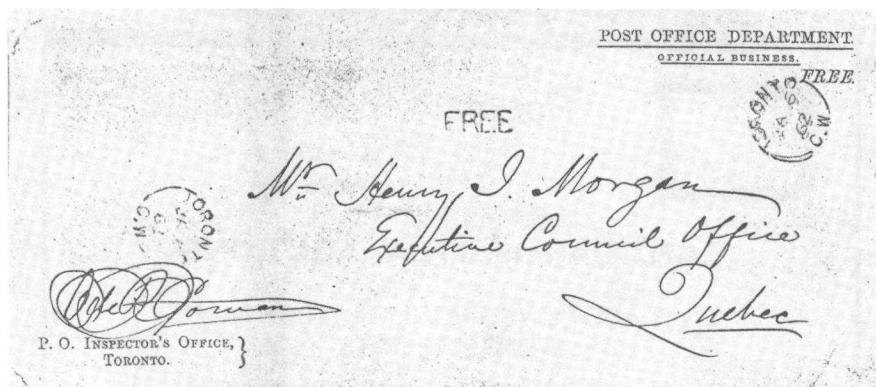 POST OFFICE DEPARTMENT.
OFFICIAL BUSINESS.
FREE.
TORONTO
C.W
FREE
Mr Henry J. Morgan
Executive Council Office
Quebec
TORONTO
C.W
Gowan
P. O. INSPECTOR'S OFFICE,
TORONTO.